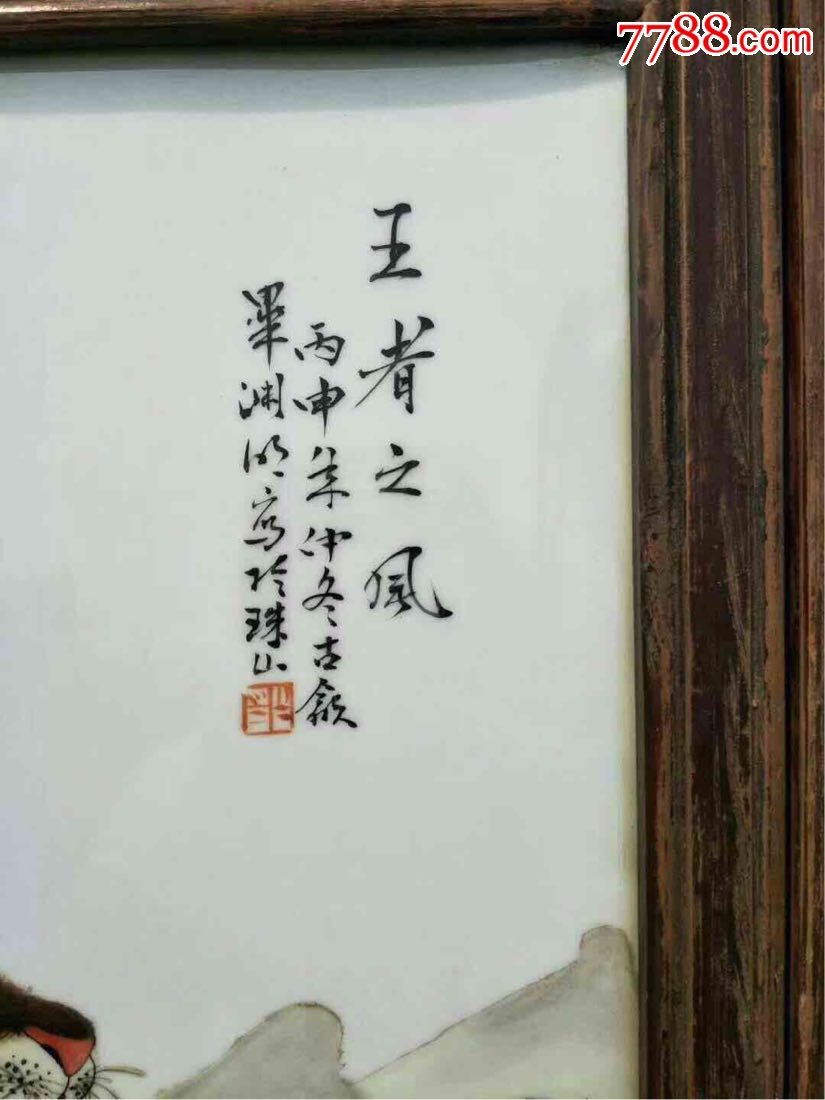 7788.com
王者之風
丙申年仲冬古歙
畢渊明寫於珠山